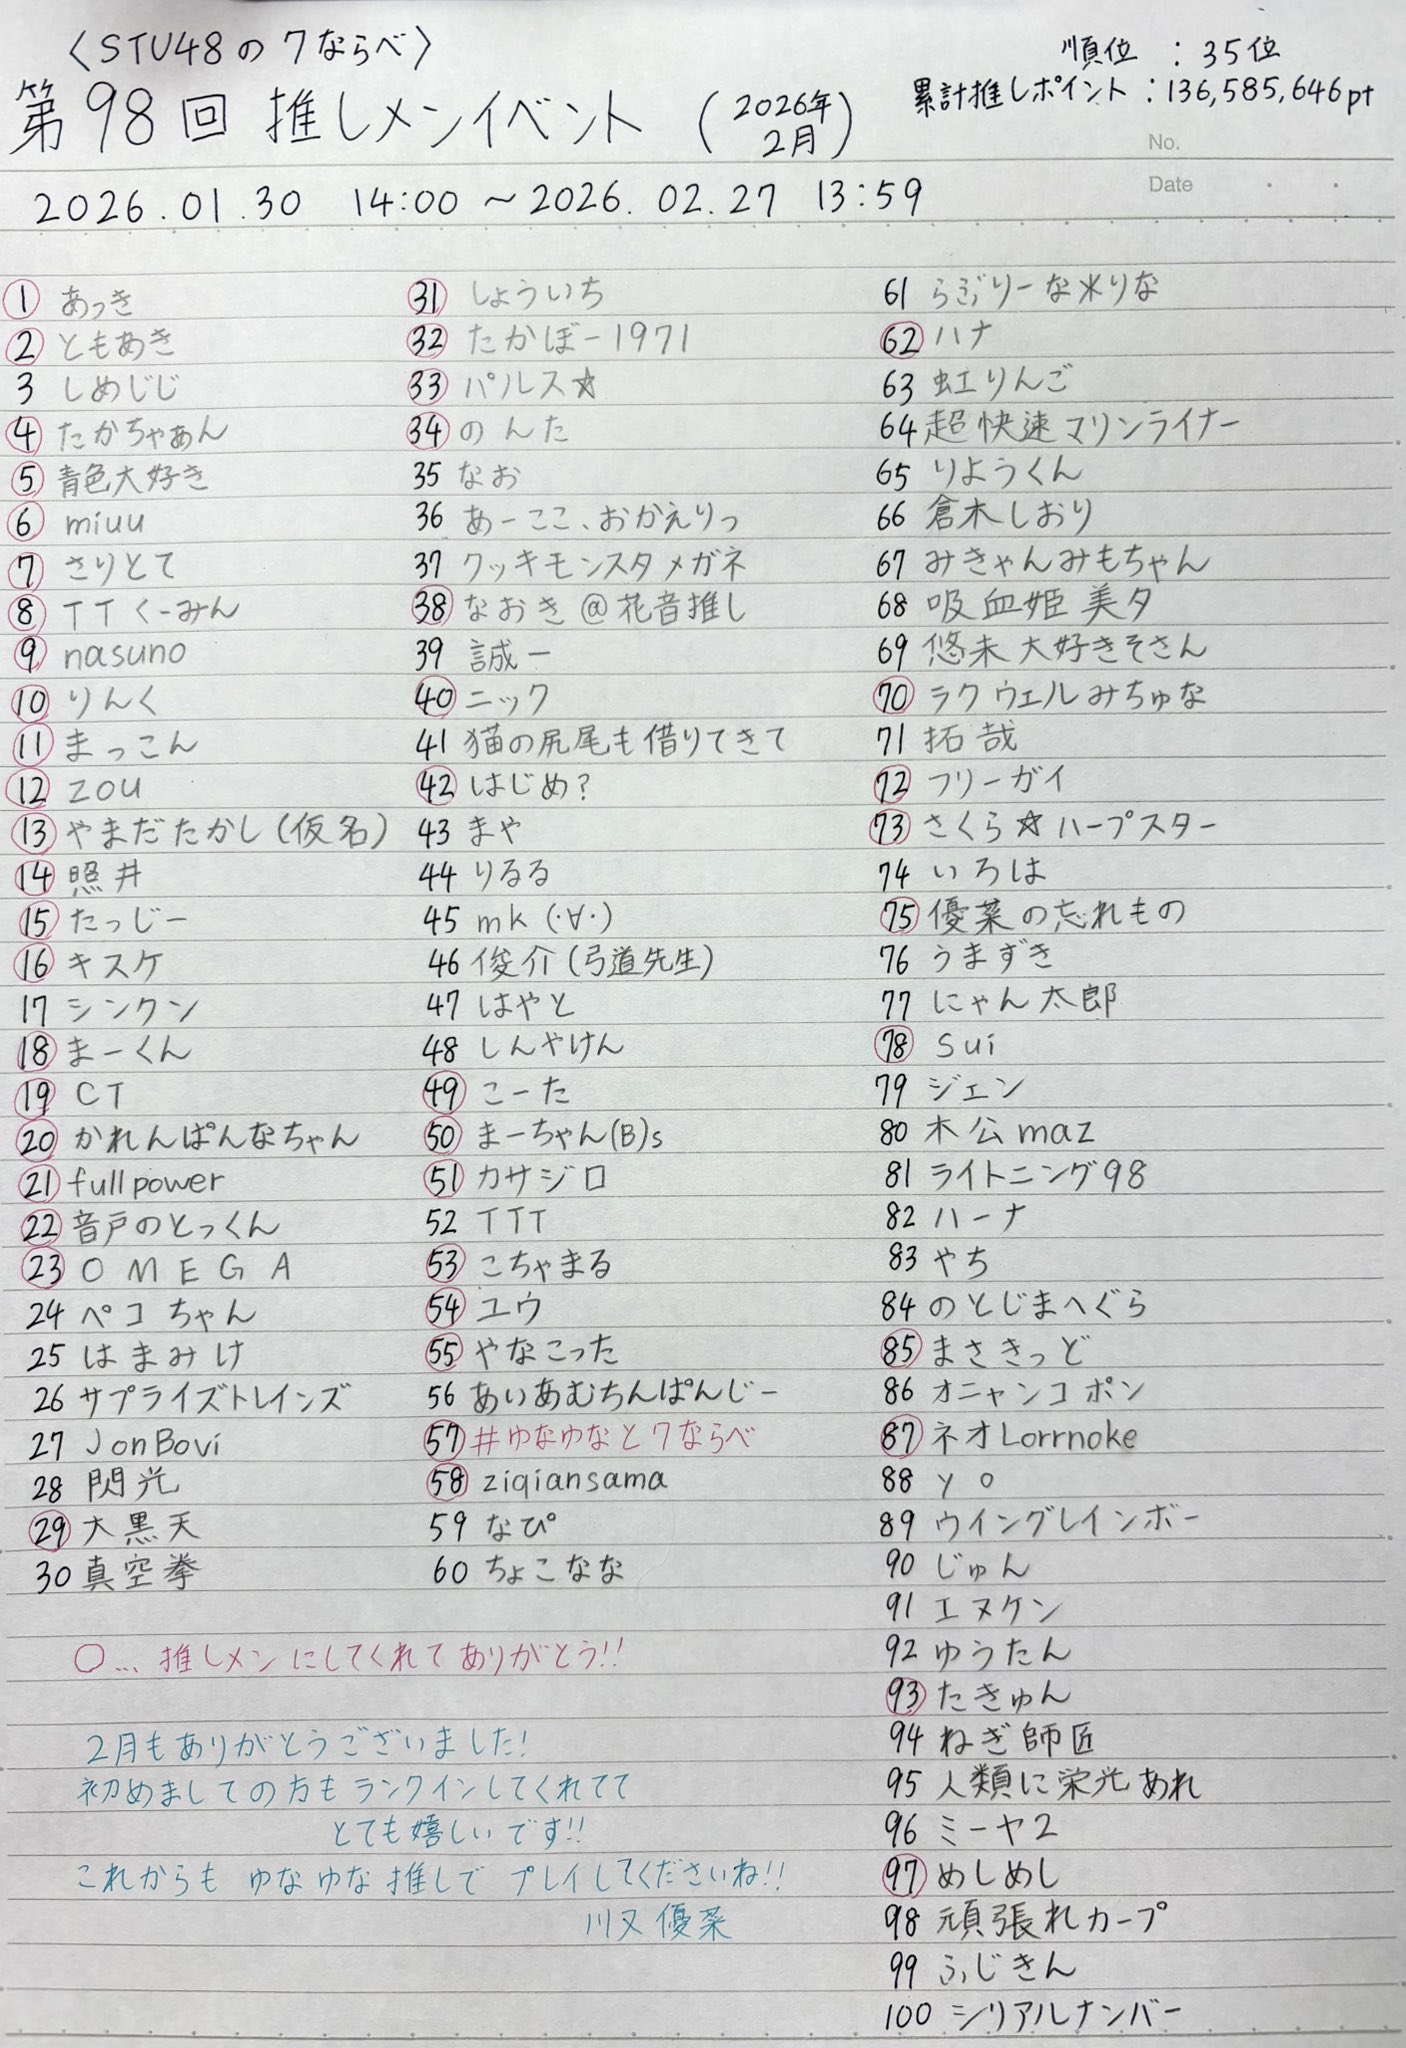 〈STU48の7ならべ〉
順位 : 35位
第98回 推しメンイベント (2026年2月)
累計推しポイント : 136,585,646pt
No.
Date
2026.01.30 14:00 ~ 2026.02.27 13:59
1 あっき
2 ともあき
3 しめじじ
4 たかちゃぁん
5 青色大好き
6 miuu
7 さりとて
8 TTくーみん
9 nasuno
10 りんく
11 まっこん
12 ZOU
13 やまだたかし(仮名)
14 照井
15 たっじー
16 キスケ
17 シンクン
18 まーくん
19 CT
20 かれんぱんなちゃん
21 fullpower
22 音戸のとっくん
23 OMEGA
24 ペコちゃん
25 はまみけ
26 サプライズトレインズ
27 JonBovi
28 閃光
29 大黒天
30 真空拳
31 しょういち
32 たかぼー1971
33 パルス☆
34 のんた
35 なお
36 あーここ、おかえりっ
37 クッキモンスタメガネ
38 なおき@花音推し
39 誠一
40 ニック
41 猫の尻尾も借りてきて
42 はじめ?
43 まや
44 りるる
45 mk (・∀・)
46 俊介(弓道先生)
47 はやと
48 しんやけん
49 こーた
50 まーちゃん(B)s
51 カサジロ
52 TTT
53 こちゃまる
54 ユウ
55 やなこった
56 あぃあむちんぱんじー
57 #ゆなゆなと7ならべ
58 ziqiansama
59 なぴ
60 ちょこなな
61 らぶりーな*りな
62 ハナ
63 虹りんご
64 超快速マリンライナー
65 りようくん
66 倉木しおり
67 みきゃんみもちゃん
68 吸血姫美夕
69 悠未大好きそさん
70 ラクウェルみちゅな
71 拓哉
72 フリーガイ
73 さくら☆ハープスター
74 いろは
75 優菜の忘れもの
76 うまずき
77 にゃん太郎
78 sui
79 ジェン
80 木公maz
81 ライトニング98
82 ハーナ
83 やち
84 のとじまへぐら
85 まさきっど
86 オニャンコポン
87 ネオLorrnoke
88 yo
89 ウイングレインボー
90 じゅん
91 エヌケン
92 ゆうたん
93 たきゅん
94 ねぎ師匠
95 人類に栄光あれ
96 ミーヤ2
97 めしめし
98 頑張れカープ
99 ふじきん
100 シリアルナンバー
○…推しメンにしてくれてありがとう!!
2月もありがとうございました!
初めましての方もランクインしてくれてて
とても嬉しいです!!
これからも ゆなゆな推しで プレイしてくださいね!!
川又優菜